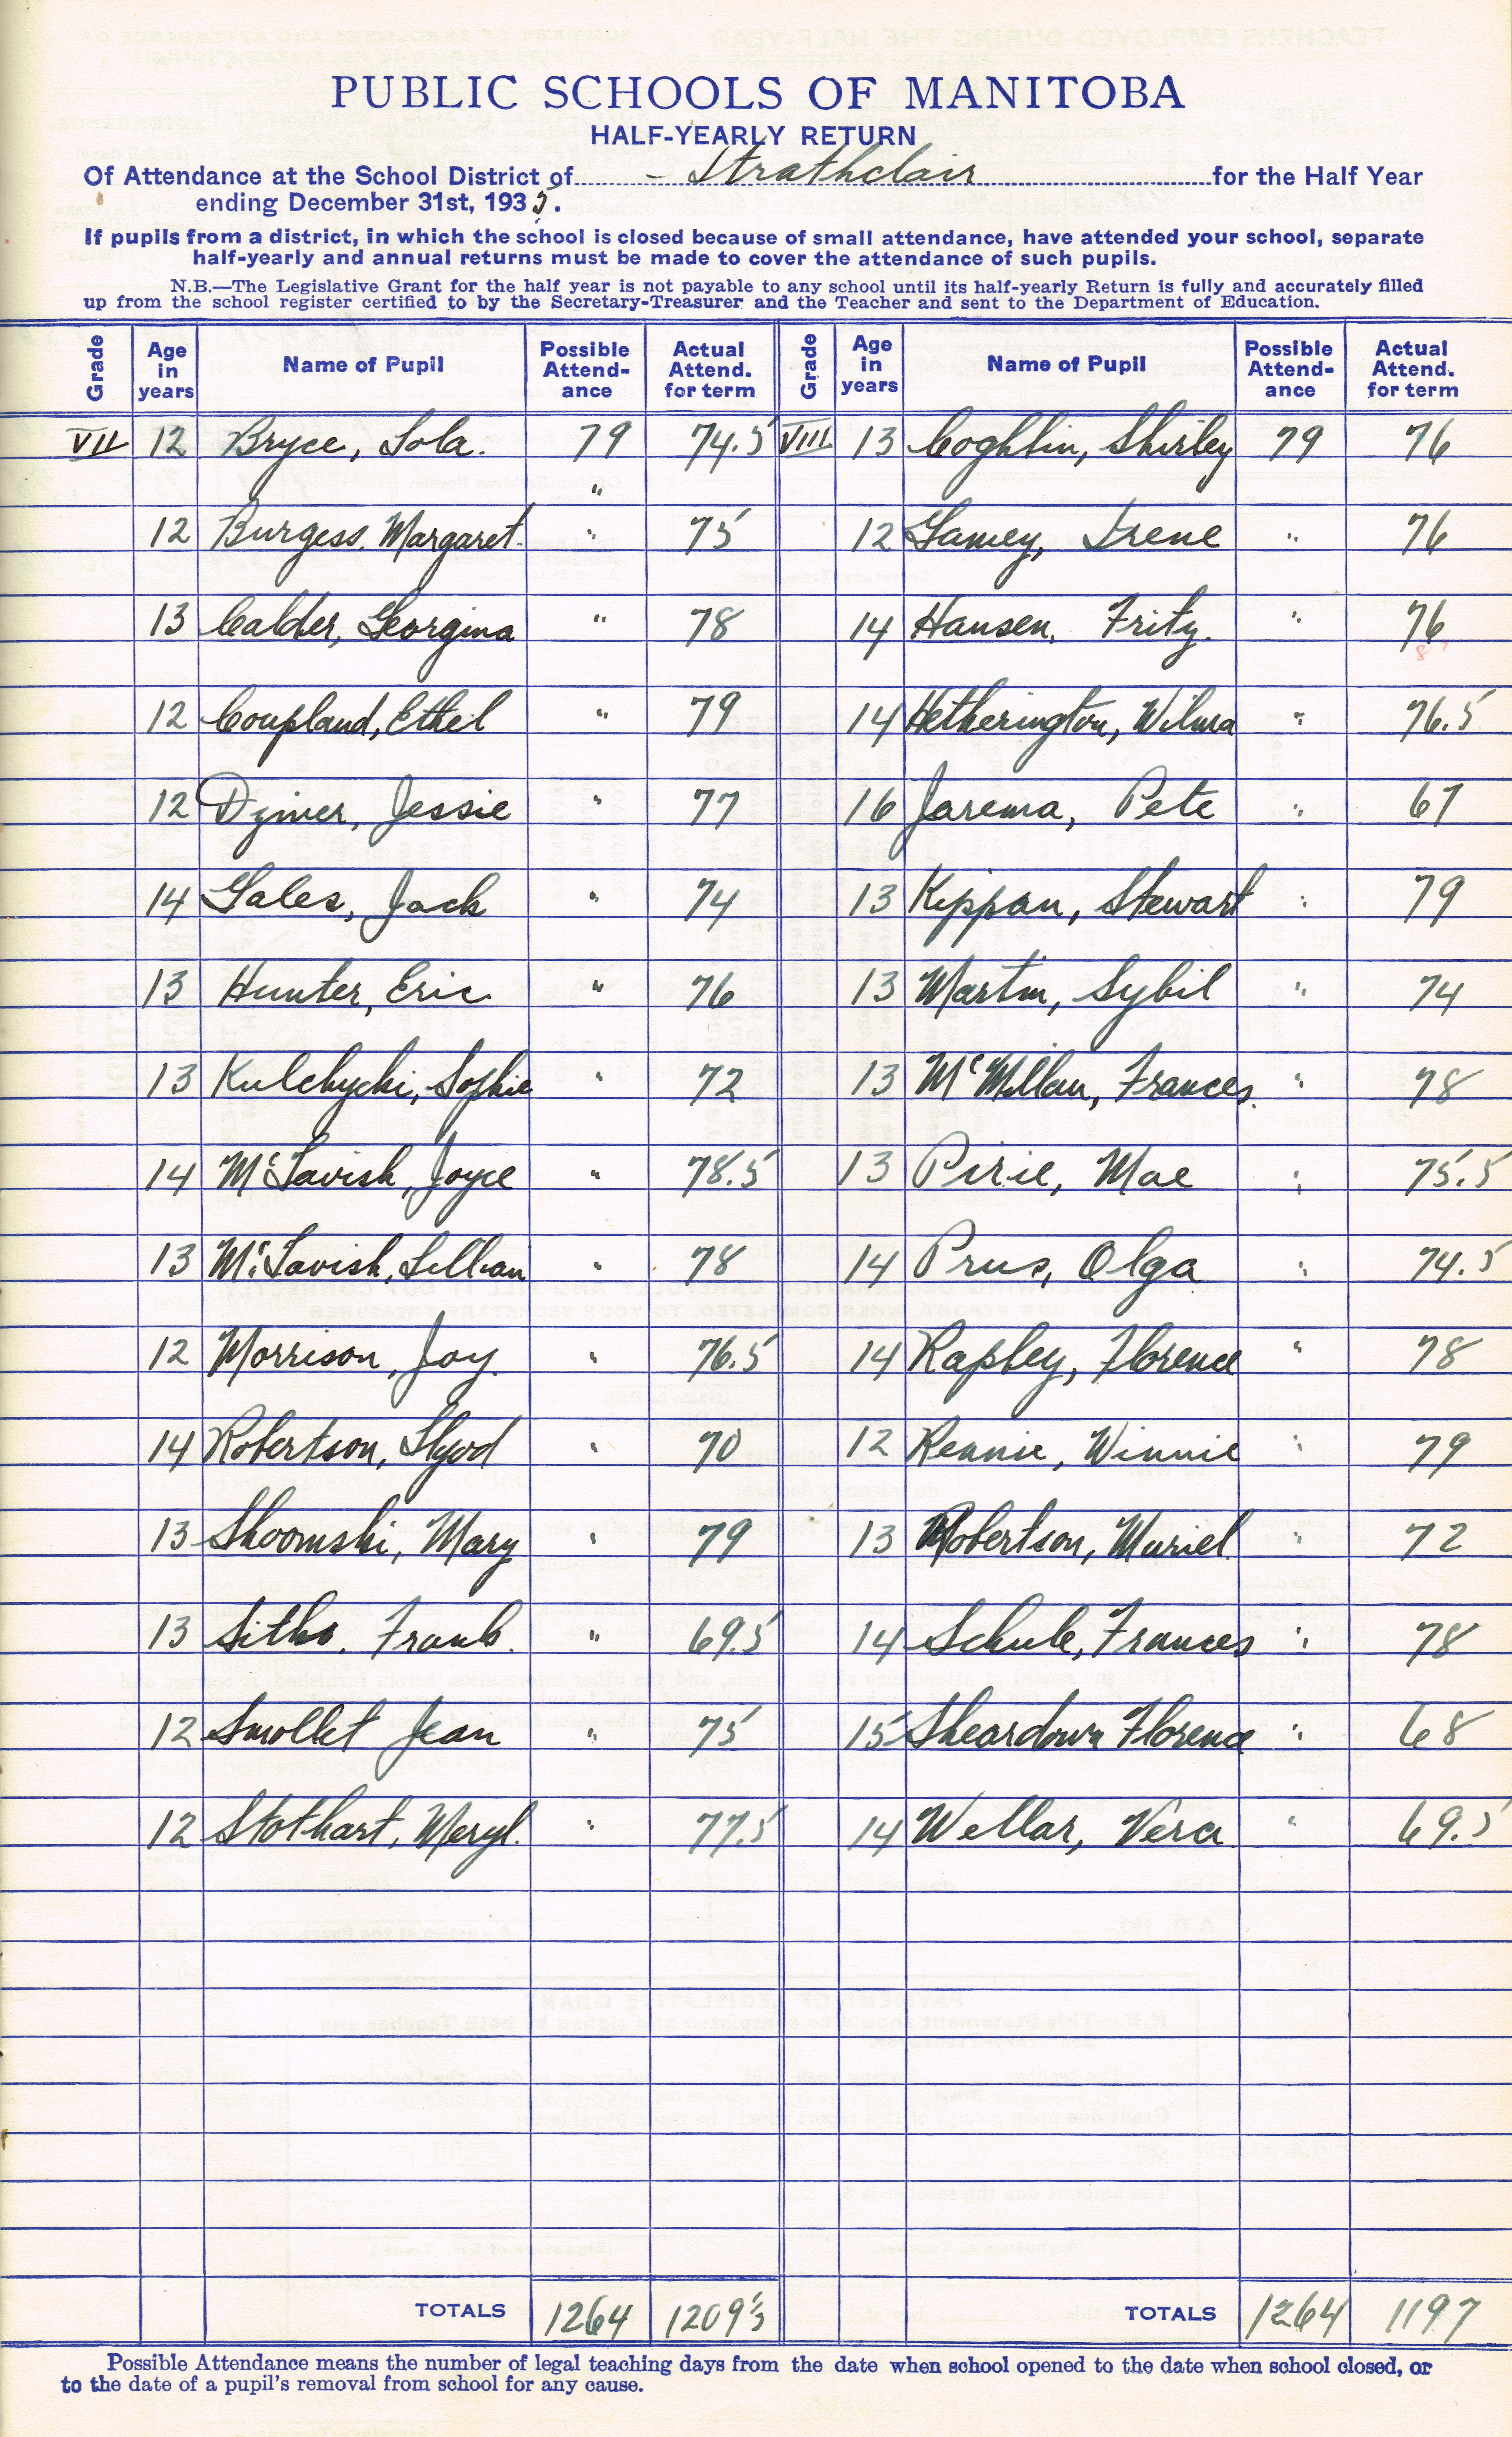 PUBLIC SCHOOLS OF MANITOBA
HALF-YEARLY RETURN
Of Attendance at the School District of - Strathclair for the Half Year
ending December 31st, 1935.
If pupils from a district, in which the school is closed because of small attendance, have attended your school, separate
half-yearly and annual returns must be made to cover the attendance of such pupils.
N.B.—The Legislative Grant for the half year is not payable to any school until its half-yearly Return is fully and accurately filled
up from the school register certified to by the Secretary-Treasurer and the Teacher and sent to the Department of Education.
Grade Age in years Name of Pupil Possible Attend-ance Actual Attend. for term Grade Age in years Name of Pupil Possible Attend-ance Actual Attend. for term
VII 12 Bryce, Lola. 79 74.5 VIII 13 Coghlin, Shirley 79 76
12 Burgess, Margaret. " 75 12 Gamey, Irene " 76
13 Calder, Georgina " 78 14 Hansen, Fritz. " 76
12 Coupland, Ethel " 79 14 Hetherington, Wilma " 76.5
12 Dymer, Jessie " 77 16 Jarema, Pete " 67
14 Gales, Jack " 74 13 Kippan, Stewart " 79
13 Hunter, Eric " 76 13 Martin, Sybil " 74
13 Kulchycki, Sophie " 72 13 McMillan, Frances. " 78
14 McTavish, Joyce " 78.5 13 Pirie, Mae " 75.5
13 McTavish, Lillian " 78 14 Prus, Olga " 74.5
12 Morrison, Joy. " 76.5 14 Rapley, Florence " 78
14 Robertson, Lloyd " 70 12 Rennie, Winnie " 79
13 Shoomski, Mary " 79 13 Robertson, Muriel " 72
13 Sitko, Frank. " 69.5 14 Schule, Frances " 78
12 Smollet Jean " 75 15 Sheardown Florence " 68
12 Stothart, Meryl. " 77.5 14 Wellar, Vera " 69.5
TOTALS 1264 1209½ TOTALS 1264 1197
Possible Attendance means the number of legal teaching days from the date when school opened to the date when school closed, or
to the date of a pupil's removal from school for any cause.